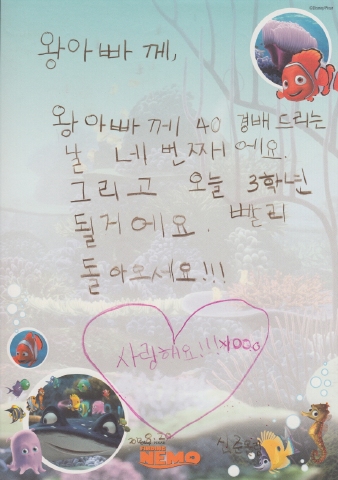 ©Disney/Pixar
왕아빠 께,
왕아빠께 40 경배 드리는
날 네 번째에요.
그리고 오늘 3학년
될거에요. 빨리
돌아오세요!!!
사랑해요!!!
NEMO